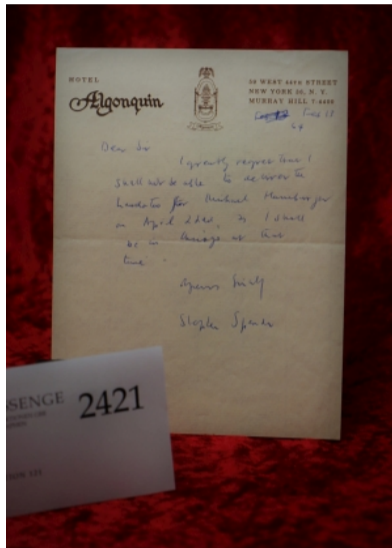 HOTEL
Algonquin
59 WEST 44TH STREET
NEW YORK 36, N. Y.
MURRAY HILL 7-4400
Feb 13
64
Dear Sir
I greatly regret that I
shall not be able to deliver the
for Michael Hamburger
on April 22nd, as I shall
be in Chicago at that
time.
Yours
Stephen Spender
SSENGE
2421
TION 131